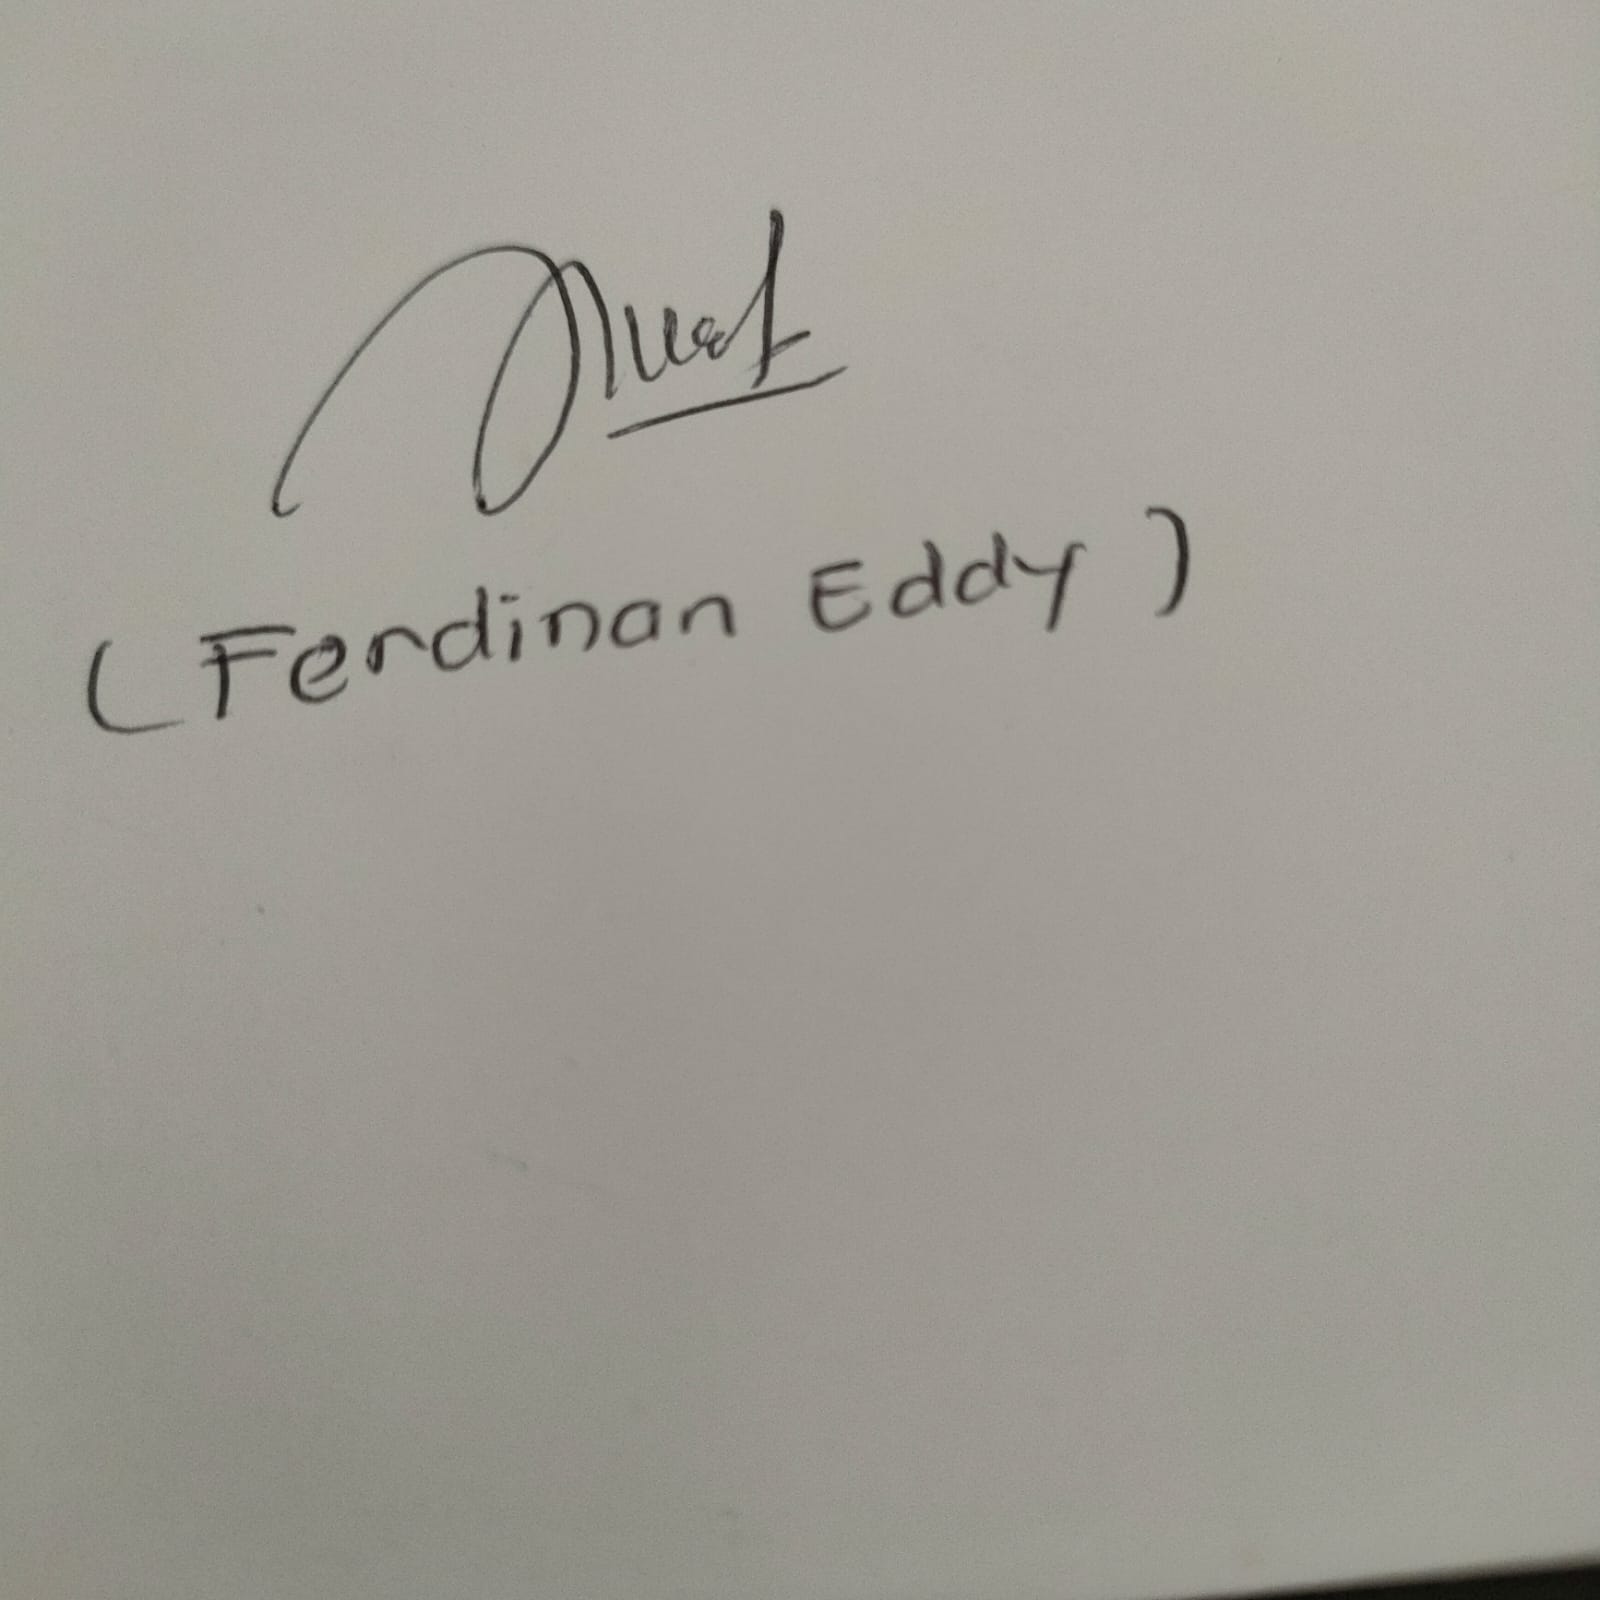 (Ferdinan Eddy)